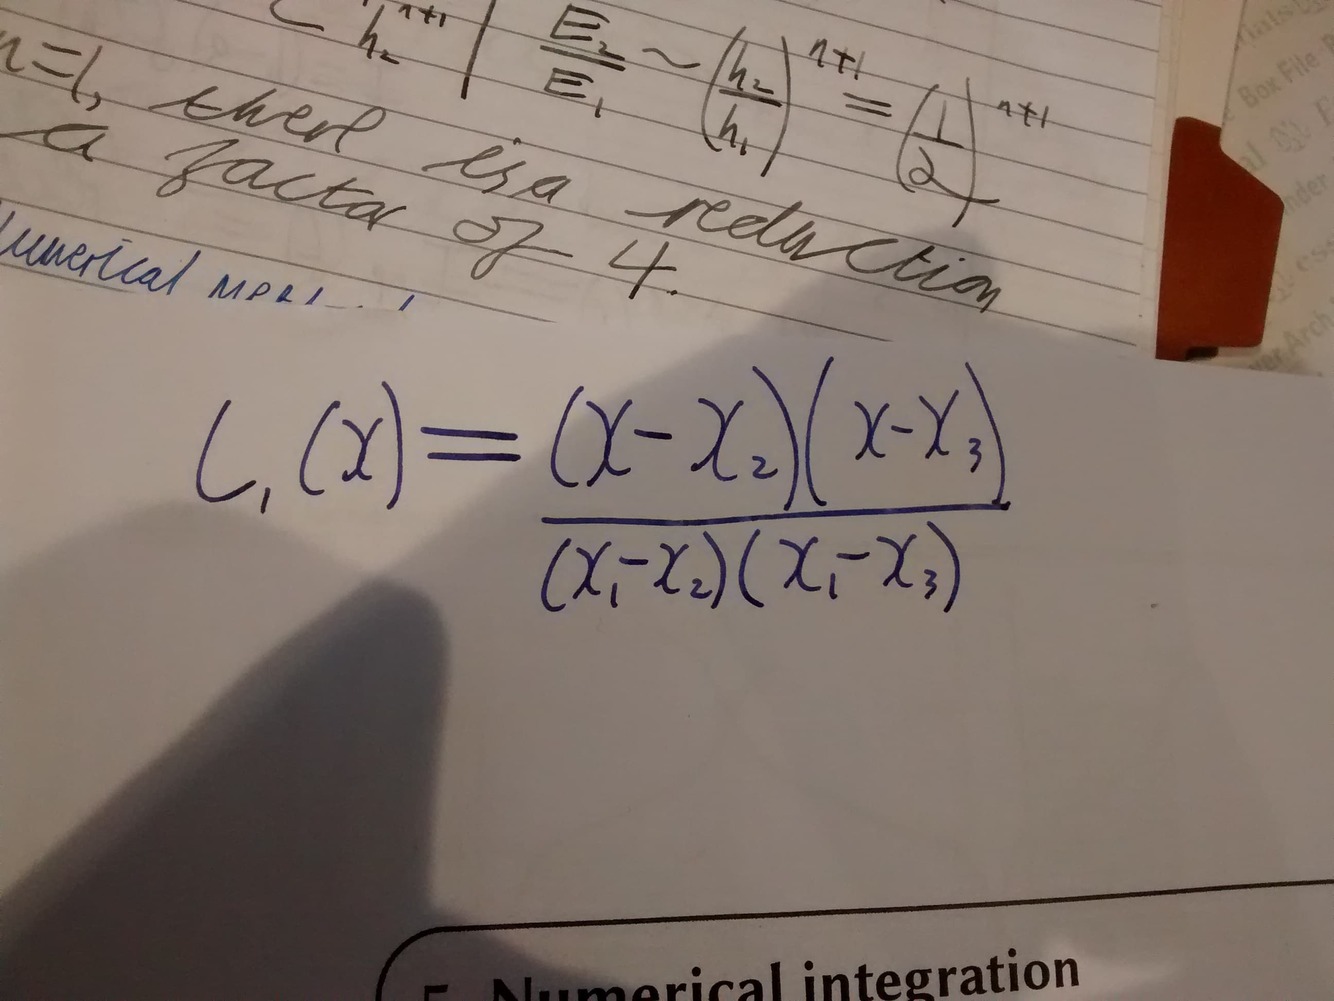 h₂ⁿ⁺¹ | E₂/E₁ ~ (h₂/h₁)ⁿ⁺¹ = (1/2)ⁿ⁺¹
n=1, there is a reduction
a factor of 4.
Numerical
L₁(x) = (x-x₂)(x-x₃)
(x₁-x₂)(x₁-x₃)
5 Numerical integration
Box File